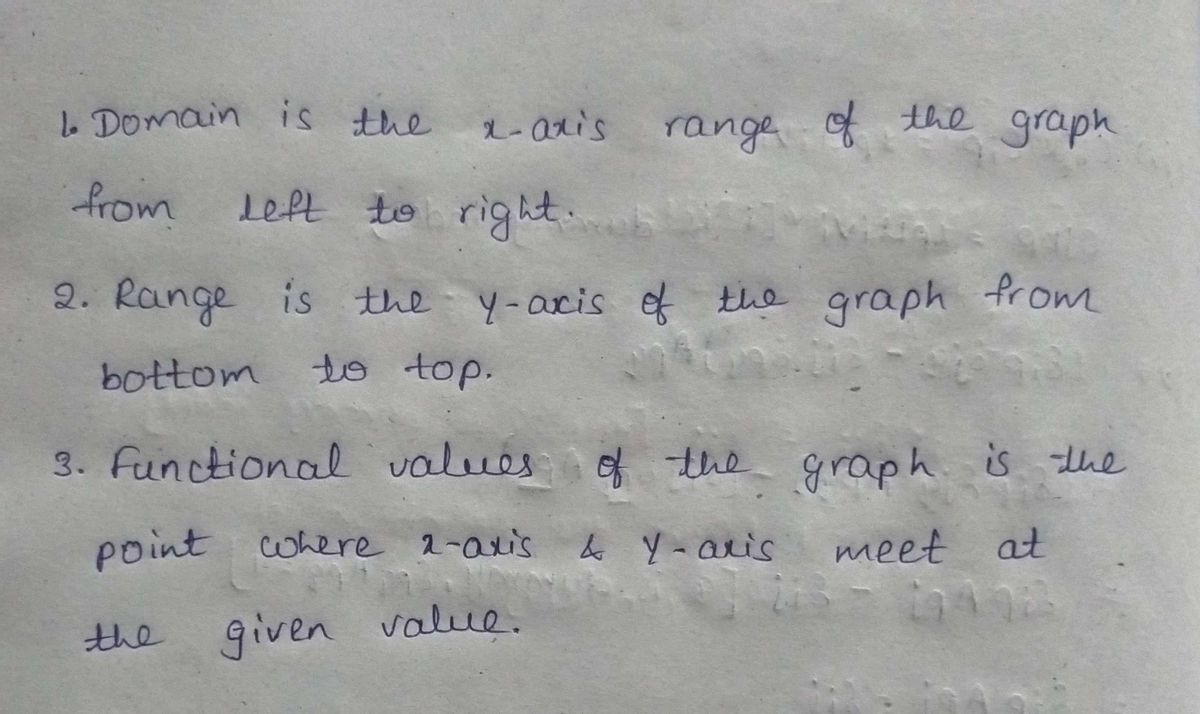 1. Domain is the x-axis range of the graph
from left to right.
2. Range is the y-axis of the graph from
bottom to top.
3. Functional values of the graph is the
point where x-axis & y-axis meet at
the given value.